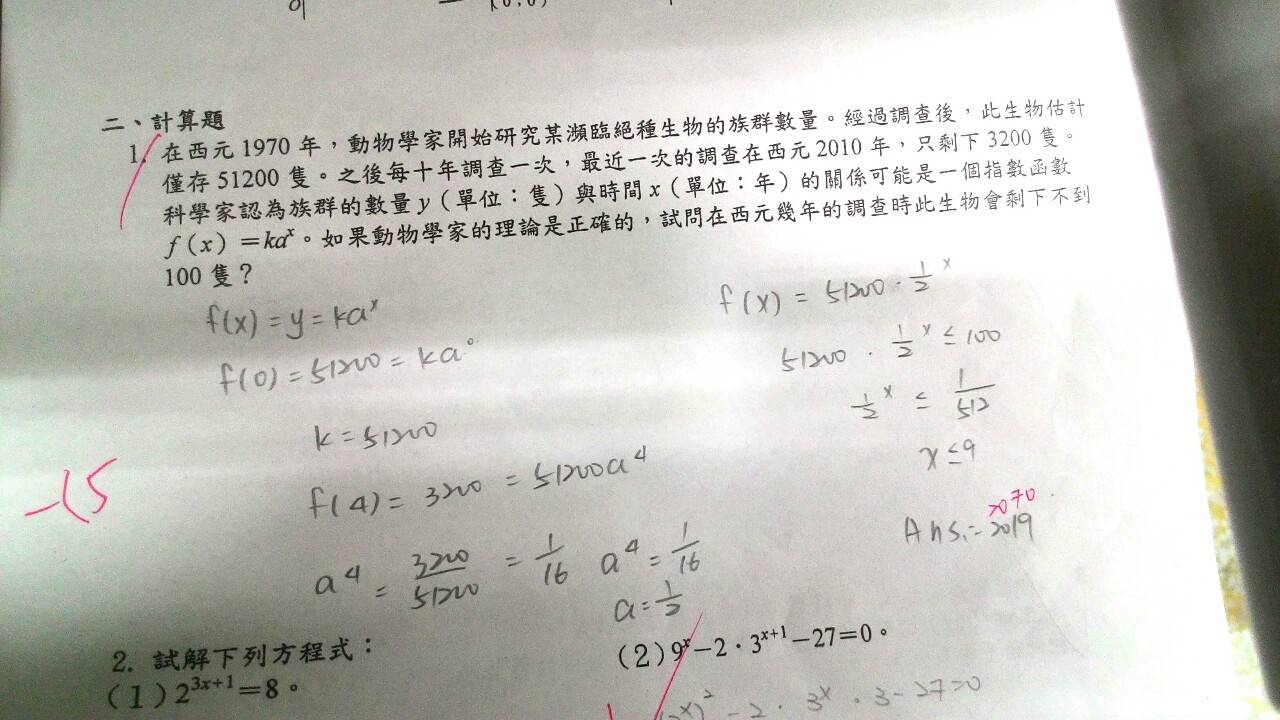 (0,0)
二、計算題
1. 在西元 1970 年，動物學家開始研究某瀕臨絕種生物的族群數量。經過調查後，此生物估計
僅存 51200 隻。之後每十年調查一次，最近一次的調查在西元 2010 年，只剩下 3200 隻。
科學家認為族群的數量 y（單位：隻）與時間 x（單位：年）的關係可能是一個指數函數
f(x)=kaˣ。如果動物學家的理論是正確的，試問在西元幾年的調查時此生物會剩下不到
100 隻？
f(x) = y = kaˣ
f(0) = 51200 = ka⁰
k = 51200
f(4) = 3200 = 51200a⁴
a⁴ = 3200/51200 = 1/16
a⁴ = 1/16
a = 1/2
f(x) = 51200 · 1/2ˣ
51200 · 1/2ˣ ≤ 100
1/2ˣ ≤ 1/512
x ≤ 9
2070
Ans. = 2019
-15
2. 試解下列方程式：
(1) 2³ˣ⁺¹=8。
(2) 9ˣ−2·3ˣ⁺¹−27=0。
ˣ)² - 2 · 3ˣ · 3 - 27=0